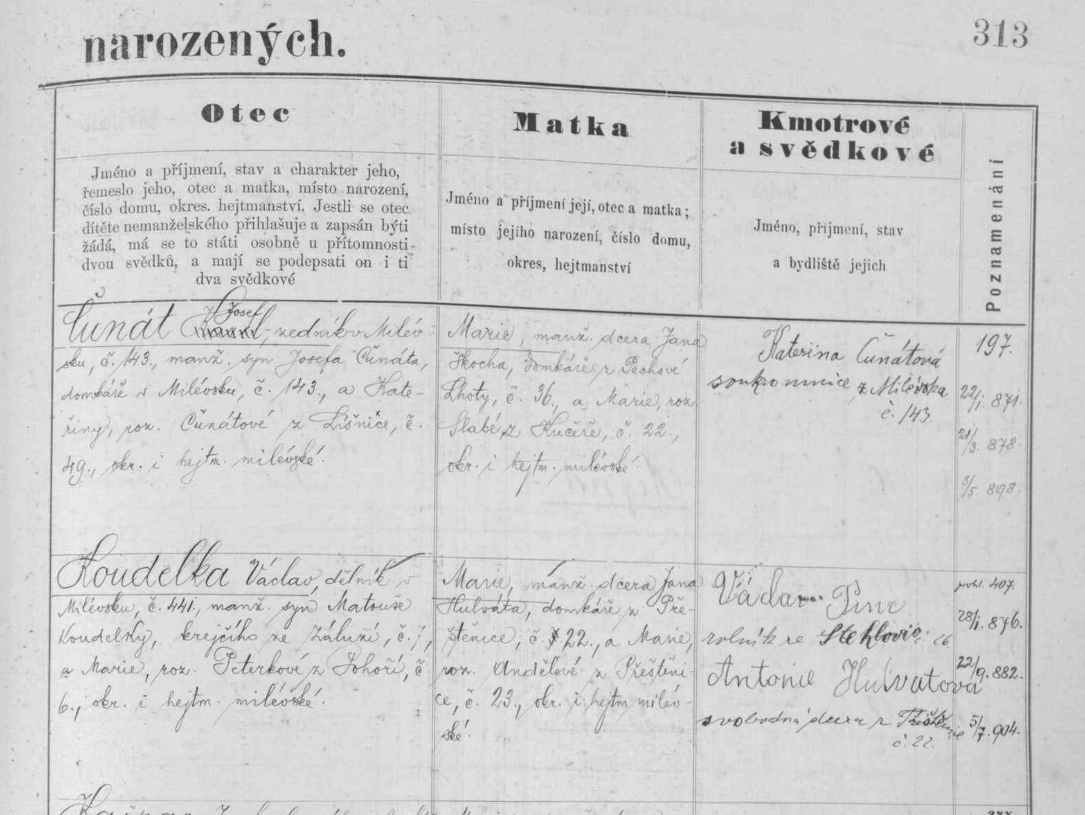 narozených.
313
Otec
Jméno a příjmení, stav a charakter jeho,
řemeslo jeho, otec a matka, místo narození,
číslo domu, okres. hejtmanství. Jestli se otec
dítěte nemanželského přihlašuje a zapsán býti
žádá, má se to státi osobně u přítomnosti
dvou svědků, a mají se podepsati on i ti
dva svědkové
Matka
Jméno a příjmení její, otec a matka;
místo jejího narození, číslo domu,
okres, hejtmanství
Kmotrové
a svědkové
Jméno, přijmení, stav
a bydliště jejich
Poznamenání
Josef
Čunát, zedník v Milév-
sku, č. 143., manž. syn Josefa Čunáta,
domkáře v Milévsku, č. 143., a Kate-
řiny, roz. Čunátové z Líšnice, č.
49., okr. i hejtm. milévské.
Marie, manž. dcera Jana
Skocha, domkáře z Pechové
Lhoty, č. 36, a Marie, roz.
Slabé z Kučíře, č. 22.,
okr. i hejtm. milévské.
Kateřina Čunátová
soukromnice z Milévska
č. 143.
197.
22/1. 871.
21/3. 878.
3/5. 898.
Koudelka Václav, dělník v
Milévsku, č. 441., manž. syn Matouše
Koudelky, krejčího ze Záluží, č. 7,
a Marie, roz. Peterkové z Dohoří, č.
6., okr. i hejtm. milévské.
Marie, manž. dcera Jana
Hulváta, domkáře z Pře-
štěnice, č. 22., a Marie,
roz. Andělové z Přeštěni-
ce, č. 23., okr. i hejtm. milév-
ské.
Václav
rolník ze Stehlovic
Antonie Hulvatova
svobodná dcera z
č. 22.
407.
28/1. 876.
22/9. 882.
5/7. 904.